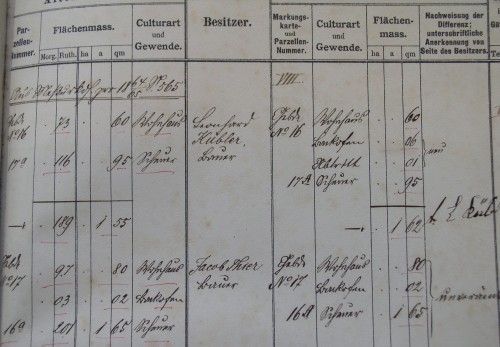 Par-
zellen-
Nummer.
Flächenmass.
Morg. Ruth. ha a qm
Culturart
und
Gewende.
Besitzer.
Markungs-
karte-
und
Parzellen-
Nummer.
Culturart
und
Gewende.
Flächen-
mass.
ha a qm
Nachweisung der
Differenz;
unterschriftliche
Anerkennung von
Seite des Besitzers.
VIII
Gebde 73 60 Wohnhaus Leonhard Gebde Wohnhaus 60
No 16 Kübler, No 16 Backofen 06
17a 116 95 Scheuer Bauer Abtritt 01 neu
17a Scheuer 95
189 1 55 1 62
Gebde 97 80 Wohnhaus Jacob Gebde Wohnhaus 80
No 17 Bauer No 17
03 02 Backofen Backofen 02
16a 201 1 65 Scheuer 16a Scheuer 1 65